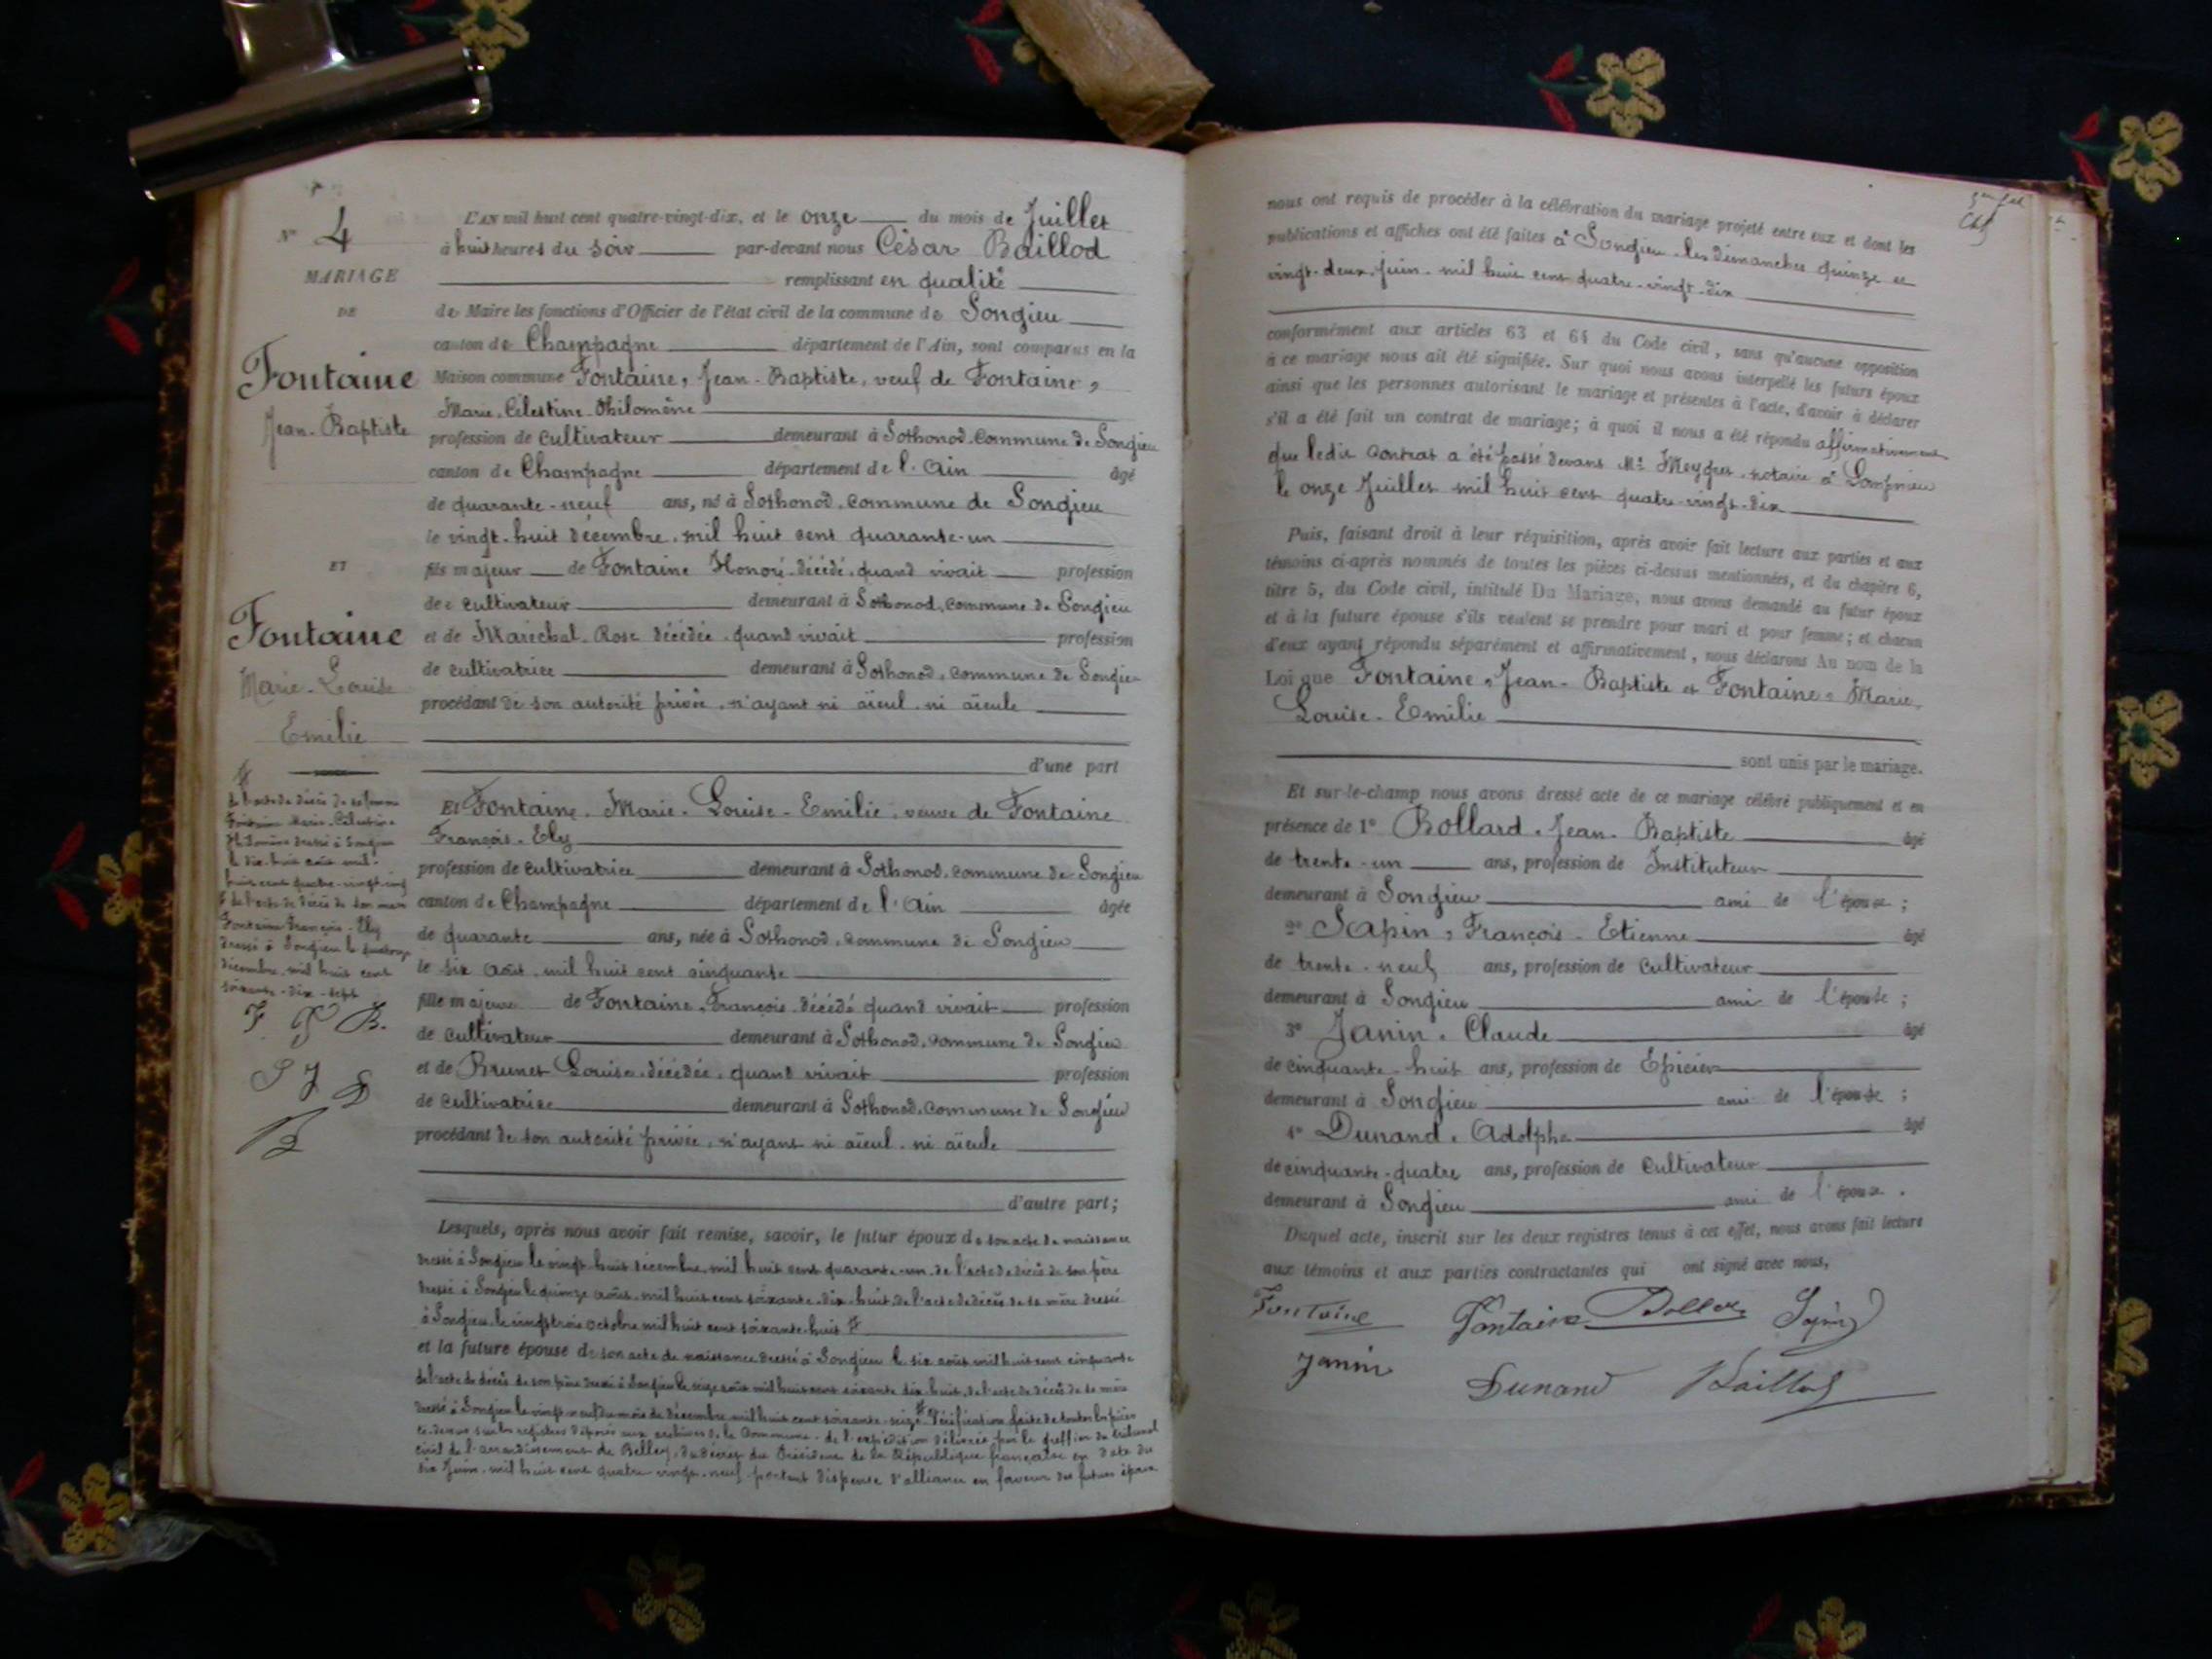 N° 4
MARIAGE
DE
Fontaine
Jean-Baptiste
ET
Fontaine
Marie-Louise
Emilie
#
de l'acte de décès de sa femme
Fontaine Marie-Célestine
Philomène dressé à Songieu
le dix-huit août mil-
huit cent quatre-vingt-cinq
& de l'acte de décès de son mari
Fontaine François-Ely
dressé à Songieu le quatorze
décembre mil huit cent
soixante-dix-sept
F. F B.
S J D
B
L'AN mil huit cent quatre-vingt-dix, et le onze du mois de Juillet
à huit heures du soir par-devant nous César Baillod
remplissant en qualité
de Maire les fonctions d'Officier de l'état civil de la commune de Songieu
canton de Champagne département de l'Ain, sont comparus en la
Maison commune Fontaine, Jean-Baptiste, veuf de Fontaine,
Marie-Célestine-Philomène
profession de cultivateur demeurant à Sothonod, commune de Songieu
canton de Champagne département de l'Ain âgé
de quarante-neuf ans, né à Sothonod, commune de Songieu
le vingt-huit décembre, mil huit cent quarante-un
fils majeur de Fontaine Honoré, décédé, quand vivait profession
de cultivateur demeurant à Sothonod, commune de Songieu
et de Maréchal Rose décédée, quand vivait profession
de cultivatrice demeurant à Sothonod, commune de Songieu
procédant de son autorité privée, n'ayant ni aïeul, ni aïeule
d'une part
Et Fontaine, Marie-Louise-Emilie, veuve de Fontaine
François-Ely
profession de cultivatrice demeurant à Sothonod, commune de Songieu
canton de Champagne département de l'Ain âgée
de quarante ans, née à Sothonod, commune de Songieu
le six août, mil huit cent cinquante
fille majeure de Fontaine, François, décédé quand vivait profession
de cultivateur demeurant à Sothonod, commune de Songieu
et de Brunet Louise, décédée, quand vivait profession
de cultivatrice demeurant à Sothonod, commune de Songieu
procédant de son autorité privée, n'ayant ni aïeul, ni aïeule
d'autre part;
Lesquels, après nous avoir fait remise, savoir, le futur époux de son acte de naissance
dressé à Songieu le vingt-huit décembre, mil huit cent quarante-un, de l'acte de décès de son père
dressé à Songieu le quinze août, mil huit cent soixante-dix-huit, de l'acte de décès de sa mère dressé
à Songieu, le vingt-trois octobre mil huit cent soixante-huit #
et la future épouse de son acte de naissance dressé à Songieu le six août mil huit cent cinquante
de l'acte de décès de son père dressé à Songieu le seize août mil huit cent soixante-dix-huit, de l'acte de décès de sa mère
dressé à Songieu le vingt-neuf du mois de décembre mil huit cent soixante-seize # Vérification faite de toutes les pièces
ci-dessus sur les registres déposés aux archives de la commune, de l'expédition délivrée par le greffier du tribunal
civil de l'arrondissement de Belley, du décret du Président de la République française en date du
dix Juin, mil huit cent quatre-vingt-neuf portant dispense d'alliance en faveur des futurs époux
nous ont requis de procéder à la célébration du mariage projeté entre eux et dont les
publications et affiches ont été faites à Songieu les dimanches quinze et
vingt-deux Juin, mil huit cent quatre-vingt-dix
conformément aux articles 63 et 64 du Code civil, sans qu'aucune opposition
à ce mariage nous ait été signifiée. Sur quoi nous avons interpellé les futurs époux
ainsi que les personnes autorisant le mariage et présentes à l'acte, d'avoir à déclarer
s'il a été fait un contrat de mariage; à quoi il nous a été répondu affirmativement
que ledit contrat a été passé devant Me notaire à
le onze Juillet mil huit cent quatre-vingt-dix
Puis, faisant droit à leur réquisition, après avoir fait lecture aux parties et aux
témoins ci-après nommés de toutes les pièces ci-dessus mentionnées, et du chapitre 6,
titre 5, du Code civil, intitulé Du Mariage, nous avons demandé au futur époux
et à la future épouse s'ils veulent se prendre pour mari et pour femme; et chacun
d'eux ayant répondu séparément et affirmativement, nous déclarons Au nom de la
Loi que Fontaine, Jean-Baptiste et Fontaine, Marie-
Louise-Emilie
sont unis par le mariage.
Et sur-le-champ nous avons dressé acte de ce mariage célébré publiquement et en
présence de 1° Bollard, Jean-Baptiste âgé
de trente-un ans, profession de Instituteur
demeurant à Songieu ami de l'épouse;
2° Sapin, François-Etienne âgé
de trente-neuf ans, profession de cultivateur
demeurant à Songieu ami de l'épouse;
3° Janin, Claude âgé
de cinquante-huit ans, profession de Epicier
demeurant à Songieu ami de l'épouse;
4° Dunand, Adolphe âgé
de cinquante-quatre ans, profession de cultivateur
demeurant à Songieu ami de l'épouse.
Duquel acte, inscrit sur les deux registres tenus à cet effet, nous avons fait lecture
aux témoins et aux parties contractantes qui ont signé avec nous,
Fontaine Fontaine Bollard Sapin
Janin Dunand Baillod